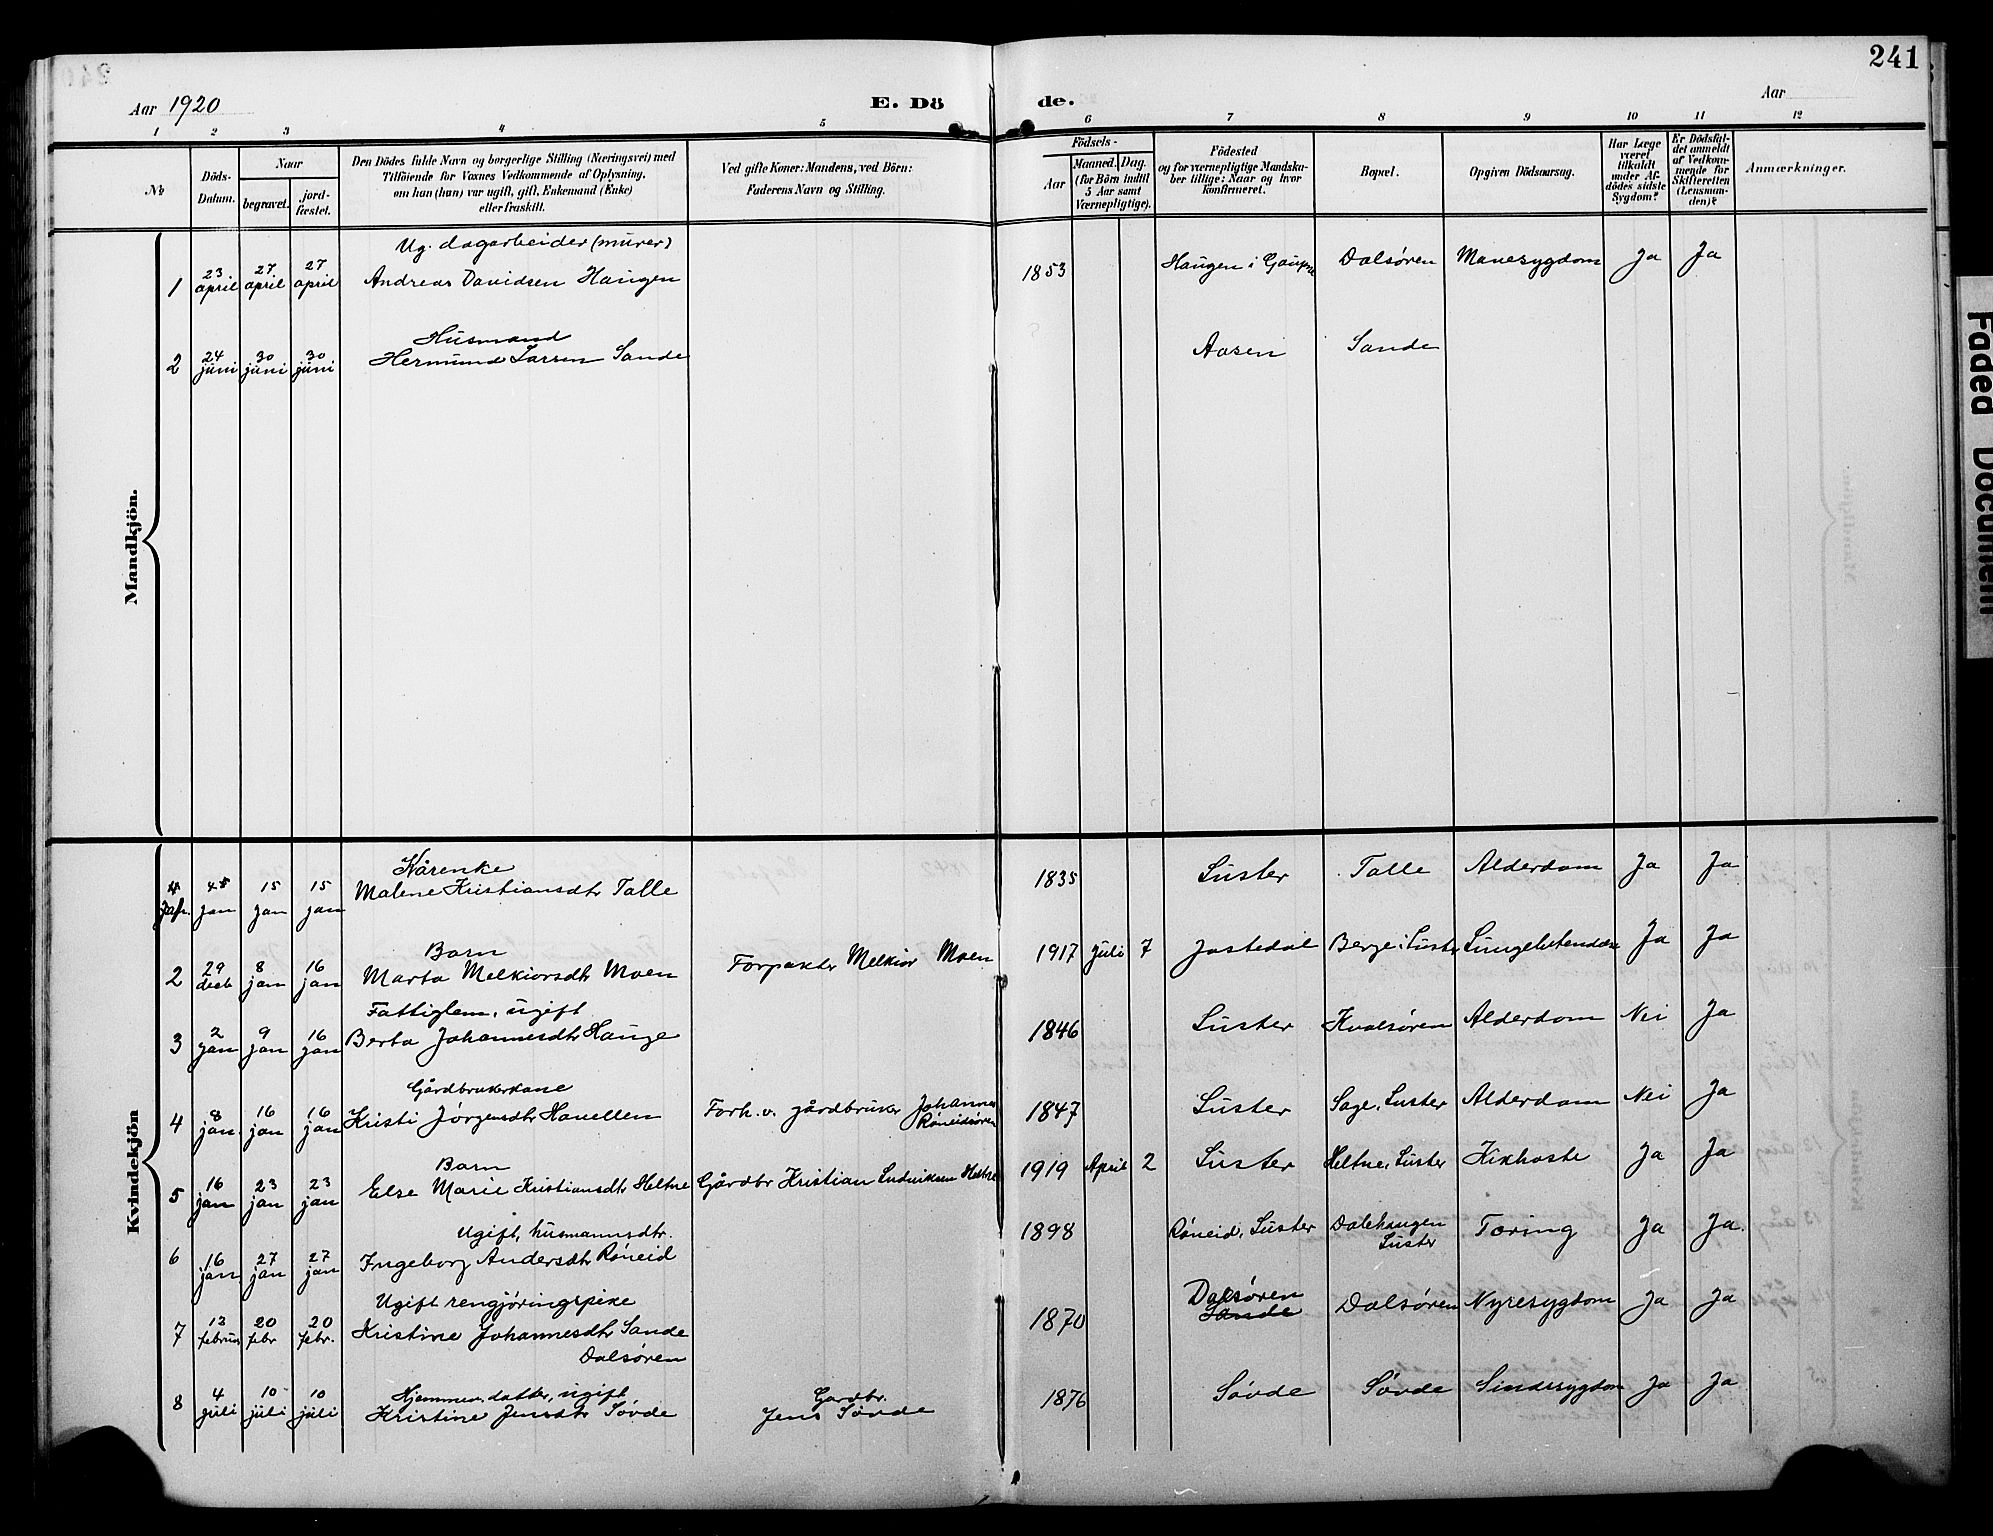 241
Aar 1920
E. Dö de.
Aar
1 2 3 4 5 6 7 8 9 10 11 12
No
Döds-
Datum.
Naar
begravet.
jord-
fæstet.
Den Dödes fulde Navn og borgerlige Stilling (Næringsvei) med
Tilföiende for Voxnes Vedkommende af Oplysning,
om han (hun) var ugift, gift, Enkemand (Enke)
eller fraskilt.
Ved gifte Koner: Mandens, ved Börn:
Faderens Navn og Stilling.
Födsels-
Aar
Maaned. Dag.
(for Börn indtil
5 Aar samt
Værnepligtige).
Födested
og for værnepligtige Mandska-
ber tillige: Naar og hvor
konfirmeret.
Bopæl.
Opgiven Dödsaarsag.
Har Læge
været
tilkaldt
under Af-
dödes sidste
Sygdom?
Er Dödsfal-
det anmeldt
af Vedkom-
mende for
Skifteretten
(Lensman-
den)?
Anmærkninger.
Mandkjön.
Ug. dagarbeider (murer)
1 23 april 27 april 27 april Andreas Davidsen Haugen 1853 Haugen i Gaupne Dalsøren Mavesygdom Ja Ja
Husmand
2 24 juni 30 juni 30 juni Hermund Larsen Sande Aasen Sande
Kvindekjön
Kårenke
jan 15 jan 15 jan Malene Kristiansdtr Talle 1835 Luster Talle Alderdom Ja Ja
Barn
2 29 decb 8 jan 16 jan Marta Melkiorsdtr Moen Forpakter Melkior Moen 1917 Juli 7 Jostedal Berge i Luster Lungebetendelse Ja Ja
Fattiglem, ugift
3 2 jan 9 jan 16 jan Berta Johannesdtr Hauge 1846 Luster Kvalsøren Alderdom Nei Ja
Gårdbrukerkone
4 8 jan. 16 jan 16 jan Kristi Jørgensdtr Havellen Forh. v. gårdbruker Johannes Røneidsøren 1847 Luster Sage, Luster Alderdom Nei Ja
Barn
5 16 jan 23 jan 23 jan Else Marie Kristiansdtr Heltne Gårdbr Kristian Ludviksen Heltne 1919 April 2 Luster Heltne, Luster Kikhoste Ja Ja
Ugift, husmannsdtr.
6 16 jan 27 jan 27 jan Ingeborg Andersdtr Røneid 1898 Røneid, Luster Dalehaugen Luster Tæring Ja Ja.
Ugift rengjøringspike
7 13 februar 20 febr 20 febr. Kristine Johannesdtr Sande
Dalsøren 1870 Dalsøren Sande Dalsøren Nyresygdom Ja Ja
Hjemmev. datter, ugift
8 4 juli 10 juli 10 juli Kristine Jensdtr Søvde Gardbr. Jens Søvde 1876 Søvde Søvde Sindssygdom Ja Ja
Faded Document